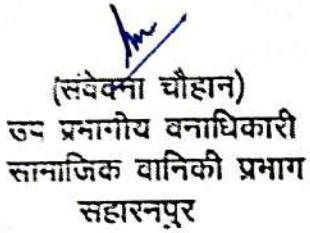 (संवेदना चौहान)
उप प्रभागीय वनाधिकारी
सामाजिक वानिकी प्रभाग
सहारनपुर